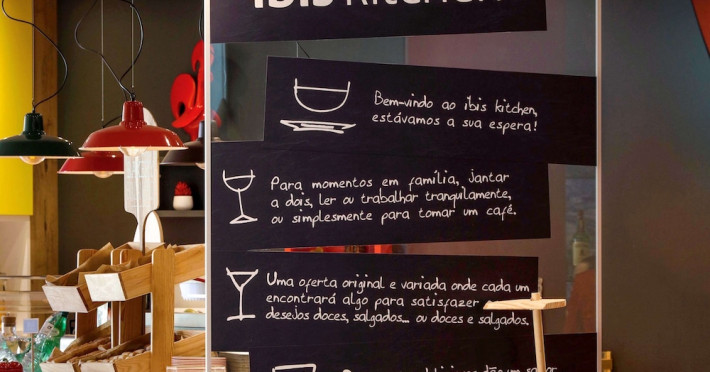 ibis Kitchen
Bem-vindo ao ibis kitchen,
estávamos a sua espera!
Para momentos em família, jantar
a dois, ler ou trabalhar tranquilamente,
ou simplesmente para tomar um café.
Uma oferta original e variada onde cada um
encontrará algo para satisfazer
desejos doces, salgados... ou doces e salgados.
dão um